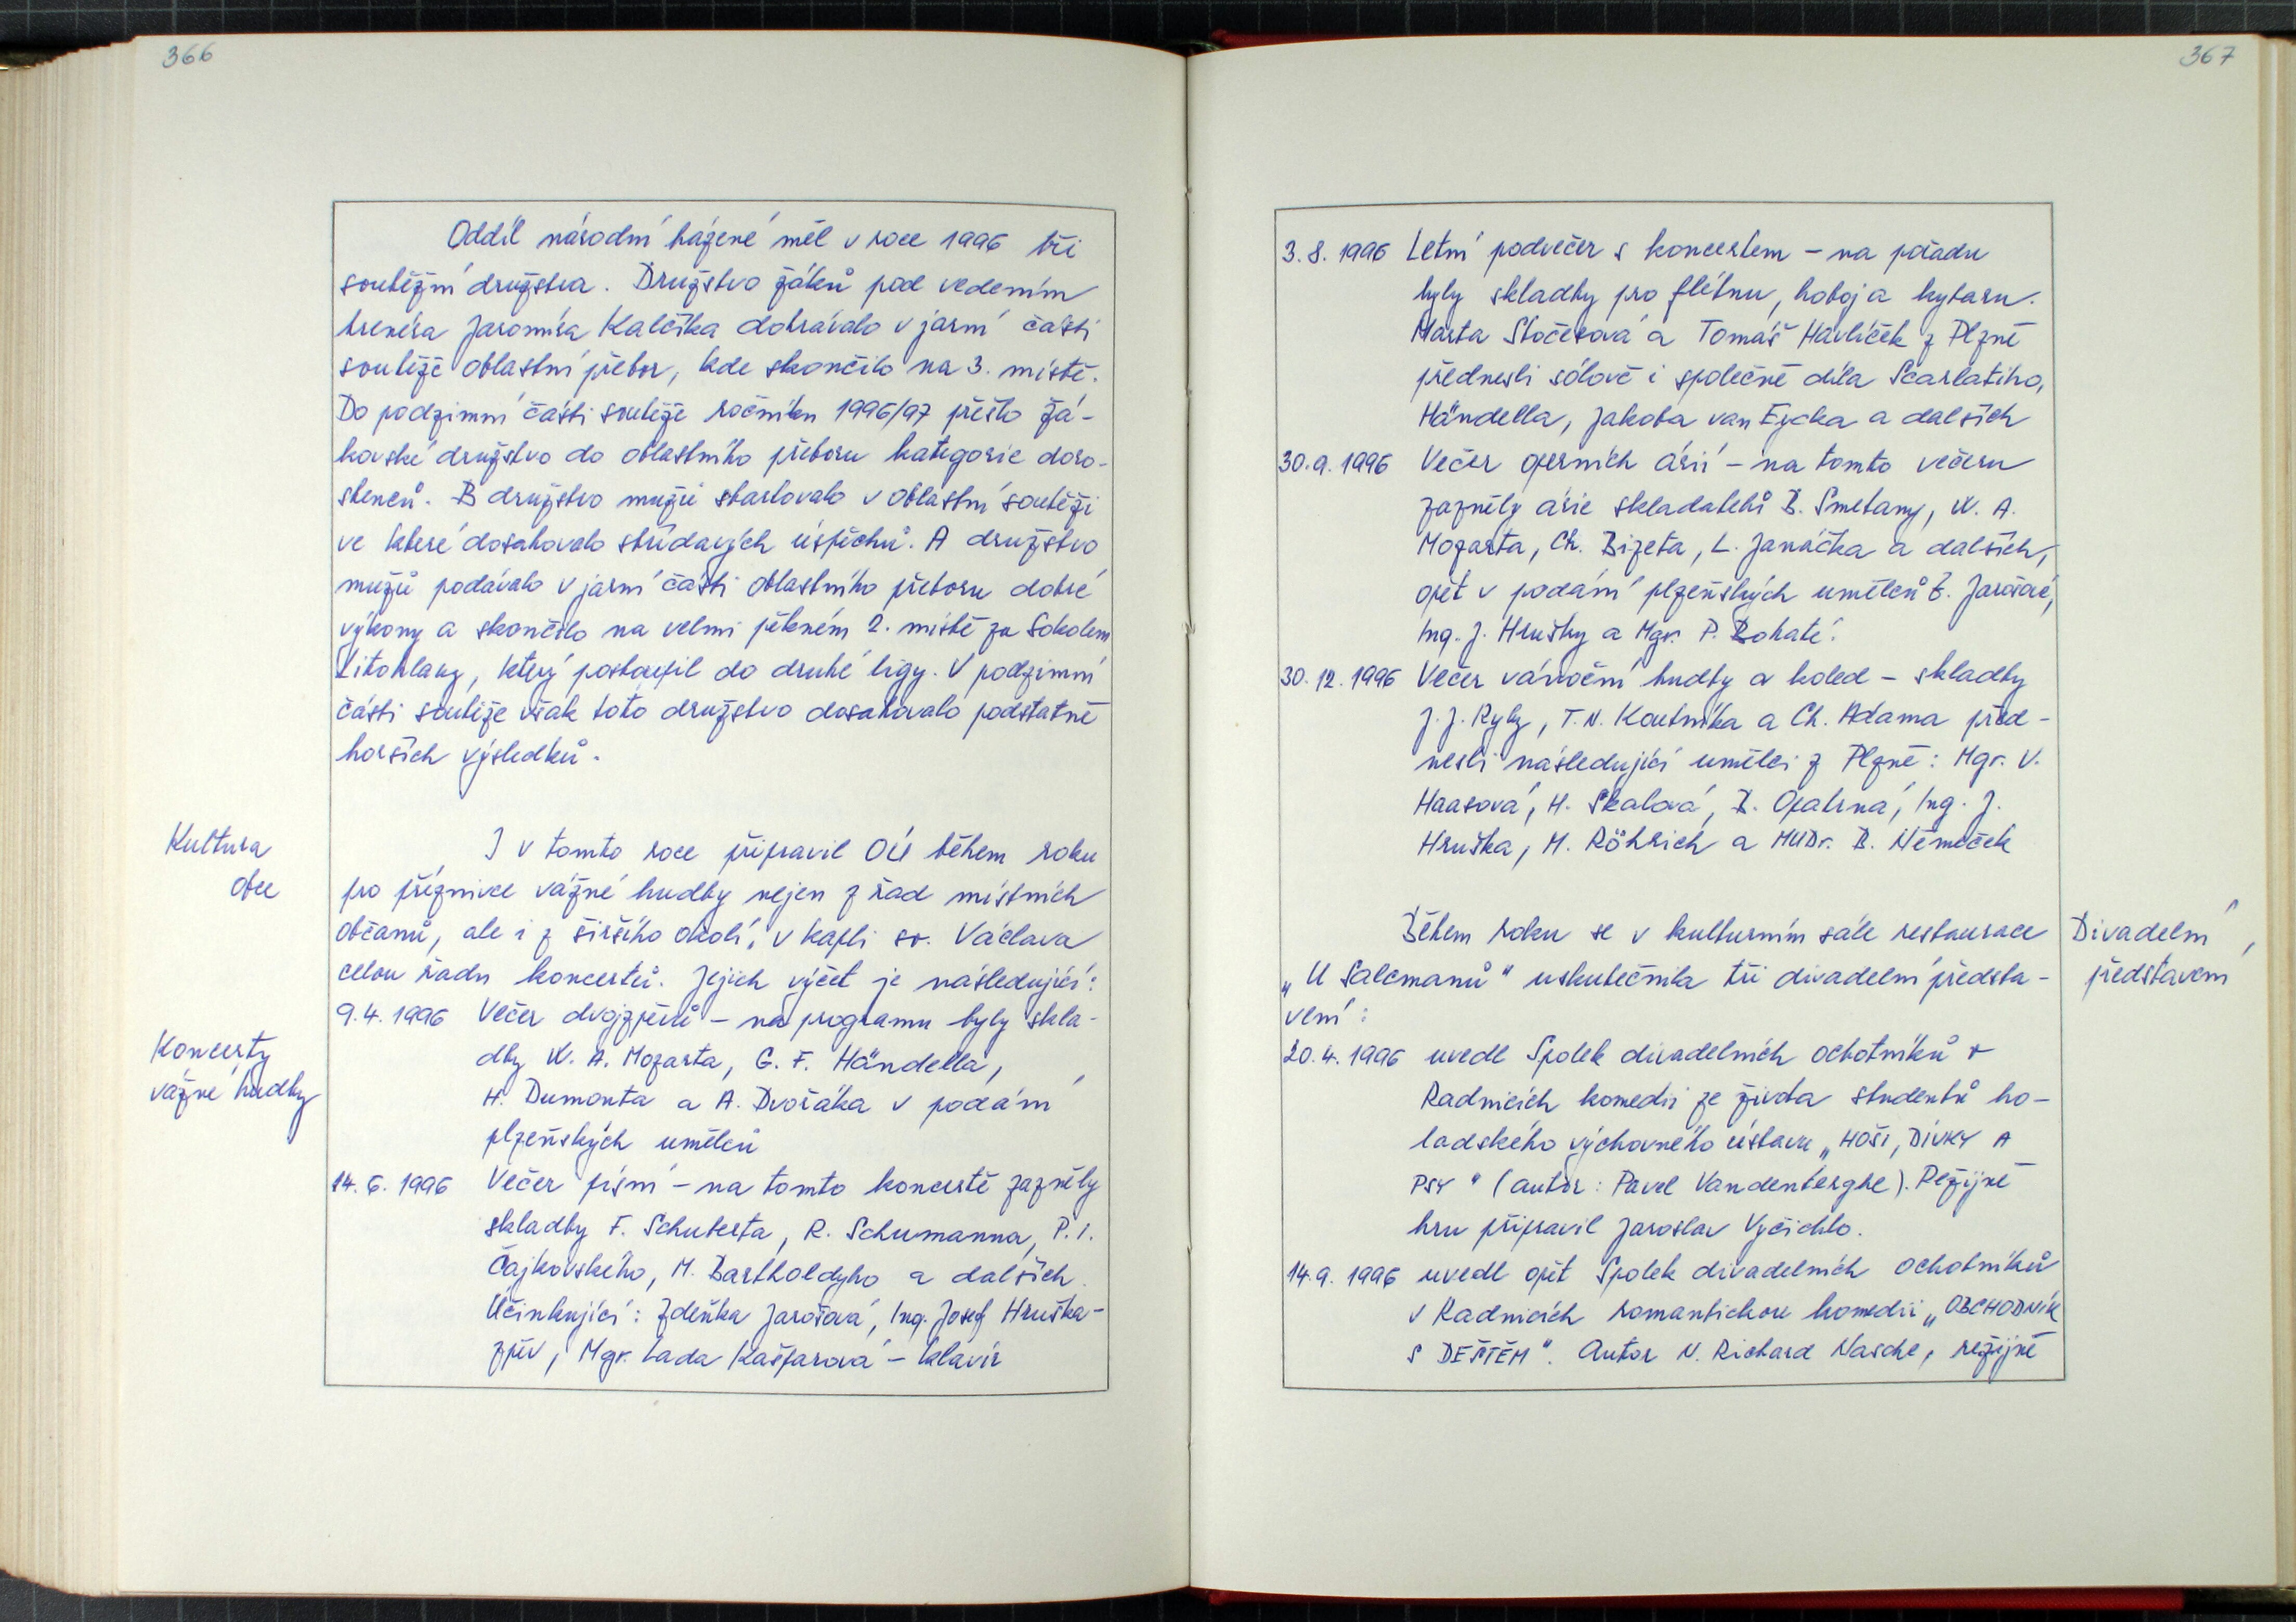 366
Oddíl národní házené měl v roce 1996 tři
soutěžní družstva. Družstvo žáků pod vedením
trenéra Jaromíra Kalčíka dohrávalo v jarní části
soutěže oblastní přebor, kde skončilo na 3. místě.
Do podzimní části soutěže ročníku 1996/97 přešlo žá-
kovské družstvo do oblastního přeboru kategorie doro-
stenců. B družstvo mužů startovalo v oblastní soutěži
ve které dosahovalo střídavých úspěchů. A družstvo
mužů podávalo v jarní části oblastního přeboru dobré
výkony a skončilo na velmi pěkném 2. místě za Sokolem
Litohlavy, který postoupil do druhé ligy. V podzimní
části soutěže však toto družstvo dosahovalo podstatně
horších výsledků.
Kultura
obce
I v tomto roce připravil OÚ během roku
pro příznivce vážné hudby nejen z řad místních
občanů, ale i z širšího okolí, v kapli sv. Václava
celou řadu koncertů. Jejich výčet je následující:
Koncerty
vážné hudby
9.4.1996 Večer dvojzpěvů - na programu byly skla-
dby W. A. Mozarta, G. F. Händella,
H. Dumonta a A. Dvořáka v podání
plzeňských umělců
14.6.1996 Večer písní - na tomto koncertě zazněly
skladby F. Schuberta, R. Schumanna, P. I.
Čajkovského, M. Bartholdyho a dalších.
Účinkující: Zdeňka Jarošová, Ing. Josef Hruška-
zpěv, Mgr. Lada Kašparová - klavír
367
3.8.1996 Letní podvečer s koncertem - na pořadu
byly skladby pro flétnu, hoboj a kytaru.
Marta Stočesová a Tomáš Havlíček z Plzně
přednesli sólově i společně díla Scarlatiho,
Händella, Jakoba van Eycka a dalších
30.9.1996 Večer operních árií - na tomto večeru
zazněly árie skladatelů B. Smetany, W. A.
Mozarta, Ch. Bizeta, L. Janáčka a dalších,
opět v podání plzeňských umělců Z. Jarošové,
Ing. J. Hrušky a Mgr. P. Bohaté.
30.12.1996 Večer vánoční hudby a koled - skladby
J. J. Ryby, T. N. Koutníka a Ch. Adama před-
nesli následující umělci z Plzně: Mgr. V.
Haasová, H. Skalová, B. Opatrná, Ing. J.
Hruška, M. Röhrich a MUDr. B. Němeček
Divadelní
představení
Během roku se v kulturním sále restaurace
„U Salcmanů" uskutečnila tři divadelní předsta-
vení:
20.4.1996 uvedl Spolek divadelních ochotníků v
Radnicích komedii ze života studentů ho-
ladského výchovného ústavu „HOŠI, DÍVKY A
PSY" (autor: Pavel Vandenberghe). Režijně
hru připravil Jaroslav Vyčichlo.
14.9.1996 uvedl opět Spolek divadelních ochotníků
v Radnicích romantickou komedii „OBCHODNÍK
S DEŠTĚM". Autor N. Richard Nasche, režijně